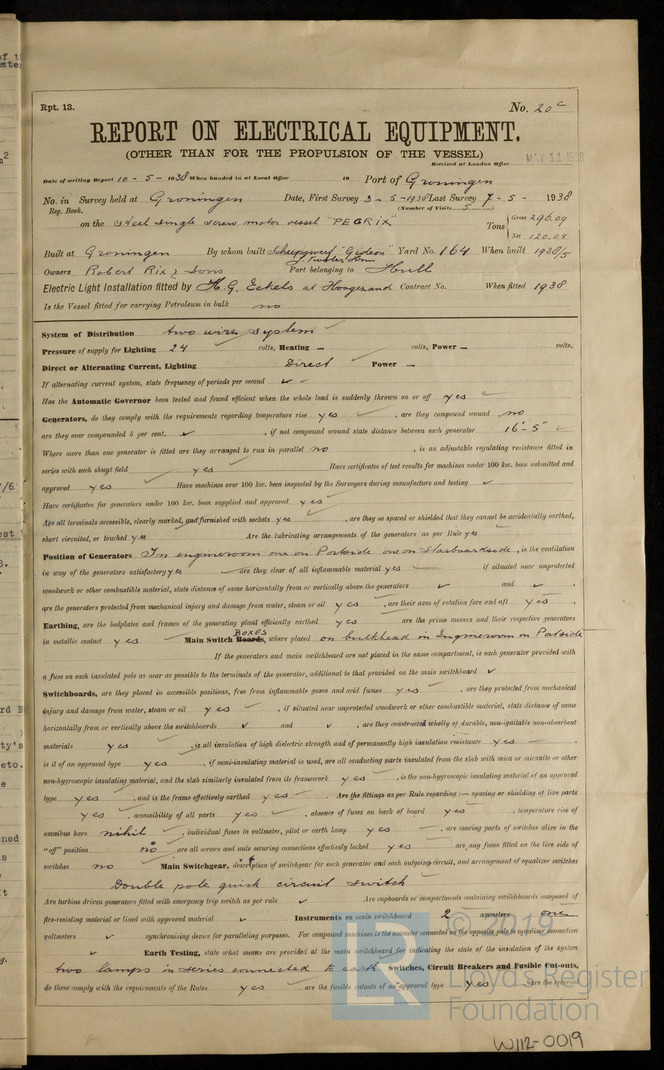 Rpt. 13.
No. 20c
REPORT ON ELECTRICAL EQUIPMENT.
(OTHER THAN FOR THE PROPULSION OF THE VESSEL)
Received at London Office
MAY 11 1938
Date of writing Report 10 - 5 - 1938 When handed in at Local Office 19 Port of Groningen
No. in Survey held at Groningen Date, First Survey 3 - 5 - 1938 Last Survey 7 - 5 - 1938
Reg. Book. (Number of Visits 5)
on the Steel single screw motor vessel "PEGRIX" Tons Gross 296.09
Net 120.04
Built at Groningen By whom built Scheepswerf "Gideon" Yard No. 164 When built 1938/5
Owners Robert Rix & Sons Port belonging to Hull
Electric Light Installation fitted by H. G. Eekels at Hoogezand Contract No. When fitted 1938
Is the Vessel fitted for carrying Petroleum in bulk no
System of Distribution two wire system
Pressure of supply for Lighting 24 volts, Heating – volts, Power – volts.
Direct or Alternating Current, Lighting Direct Power –
If alternating current system, state frequency of periods per second ✓
Has the Automatic Governor been tested and found efficient when the whole load is suddenly thrown on or off yes
Generators, do they comply with the requirements regarding temperature rise yes, are they compound wound no
are they over compounded 5 per cent. ✓, if not compound wound state distance between each generator 16'-5"
Where more than one generator is fitted are they arranged to run in parallel no, is an adjustable regulating resistance fitted in
series with each shunt field yes Have certificates of test results for machines under 100 kw. been submitted and
approved yes Have machines over 100 kw. been inspected by the Surveyors during manufacture and testing ✓
Have certificates for generators under 100 kw. been supplied and approved yes
Are all terminals accessible, clearly marked, and furnished with sockets yes, are they so spaced or shielded that they cannot be accidentally earthed,
short circuited, or touched yes Are the lubricating arrangements of the generators as per Rule yes
Position of Generators In engineroom one on Portside one on Starboardside, is the ventilation
in way of the generators satisfactory yes are they clear of all inflammable material yes if situated near unprotected
woodwork or other combustible material, state distance of same horizontally from or vertically above the generators ✓ and ✓,
are the generators protected from mechanical injury and damage from water, steam or oil yes, are their axes of rotation fore and aft yes
Earthing, are the bedplates and frames of the generating plant efficiently earthed yes are the prime movers and their respective generators
in metallic contact yes Main Switch Boards, Boxes where placed on bulkhead in Engineroom on Portside
If the generators and main switchboard are not placed in the same compartment, is each generator provided with
a fuse on each insulated pole as near as possible to the terminals of the generator, additional to that provided on the main switchboard ✓
Switchboards, are they placed in accessible positions, free from inflammable gases and acid fumes yes, are they protected from mechanical
injury and damage from water, steam or oil yes, if situated near unprotected woodwork or other combustible material, state distance of same
horizontally from or vertically above the switchboards ✓ and ✓, are they constructed wholly of durable, non-ignitable non-absorbent
materials yes, is all insulation of high dielectric strength and of permanently high insulation resistance yes,
is it of an approved type yes, if semi-insulating material is used, are all conducting parts insulated from the slab with mica or micanite or other
non-hygroscopic insulating material, and the slab similarly insulated from its framework yes, is the non-hygroscopic insulating material of an approved
type yes, and is the frame effectively earthed yes Are the fittings as per Rule regarding:— spacing or shielding of live parts
yes, accessibility of all parts yes, absence of fuses on back of board yes, temperature rise of
omnibus bars nihil, individual fuses to voltmeter, pilot or earth lamp yes, are moving parts of switches alive in the
"off" position no are all screws and nuts securing connections effectively locked yes are any fuses fitted on the live side of
switches no Main Switchgear, description of switchgear for each generator and each outgoing circuit, and arrangement of equalizer switches
Double pole quick circuit switch
Are turbine driven generators fitted with emergency trip switch as per rule ✓ Are cupboards or compartments containing switchboards composed of
fire-resisting material or lined with approved material ✓ Instruments on main switchboard 2 ammeters one
voltmeters ✓ synchronising device for paralleling purposes. For compound machines is the ammeter connected on the opposite pole to equaliser connection
✓ Earth Testing, state what means are provided at the main switchboard for indicating the state of the insulation of the system
two lamps in series connected to earth Switches, Circuit Breakers and Fusible Cut-outs,
do these comply with the requirements of the Rules yes are the fusible cutouts of an approved type yes are the reversed
© 2019
Lloyd's Register
Foundation
W112-0019